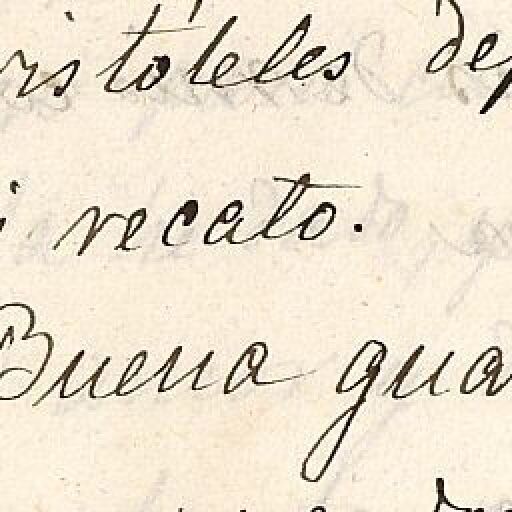 ristóteles dep
i recato.
Buena gua